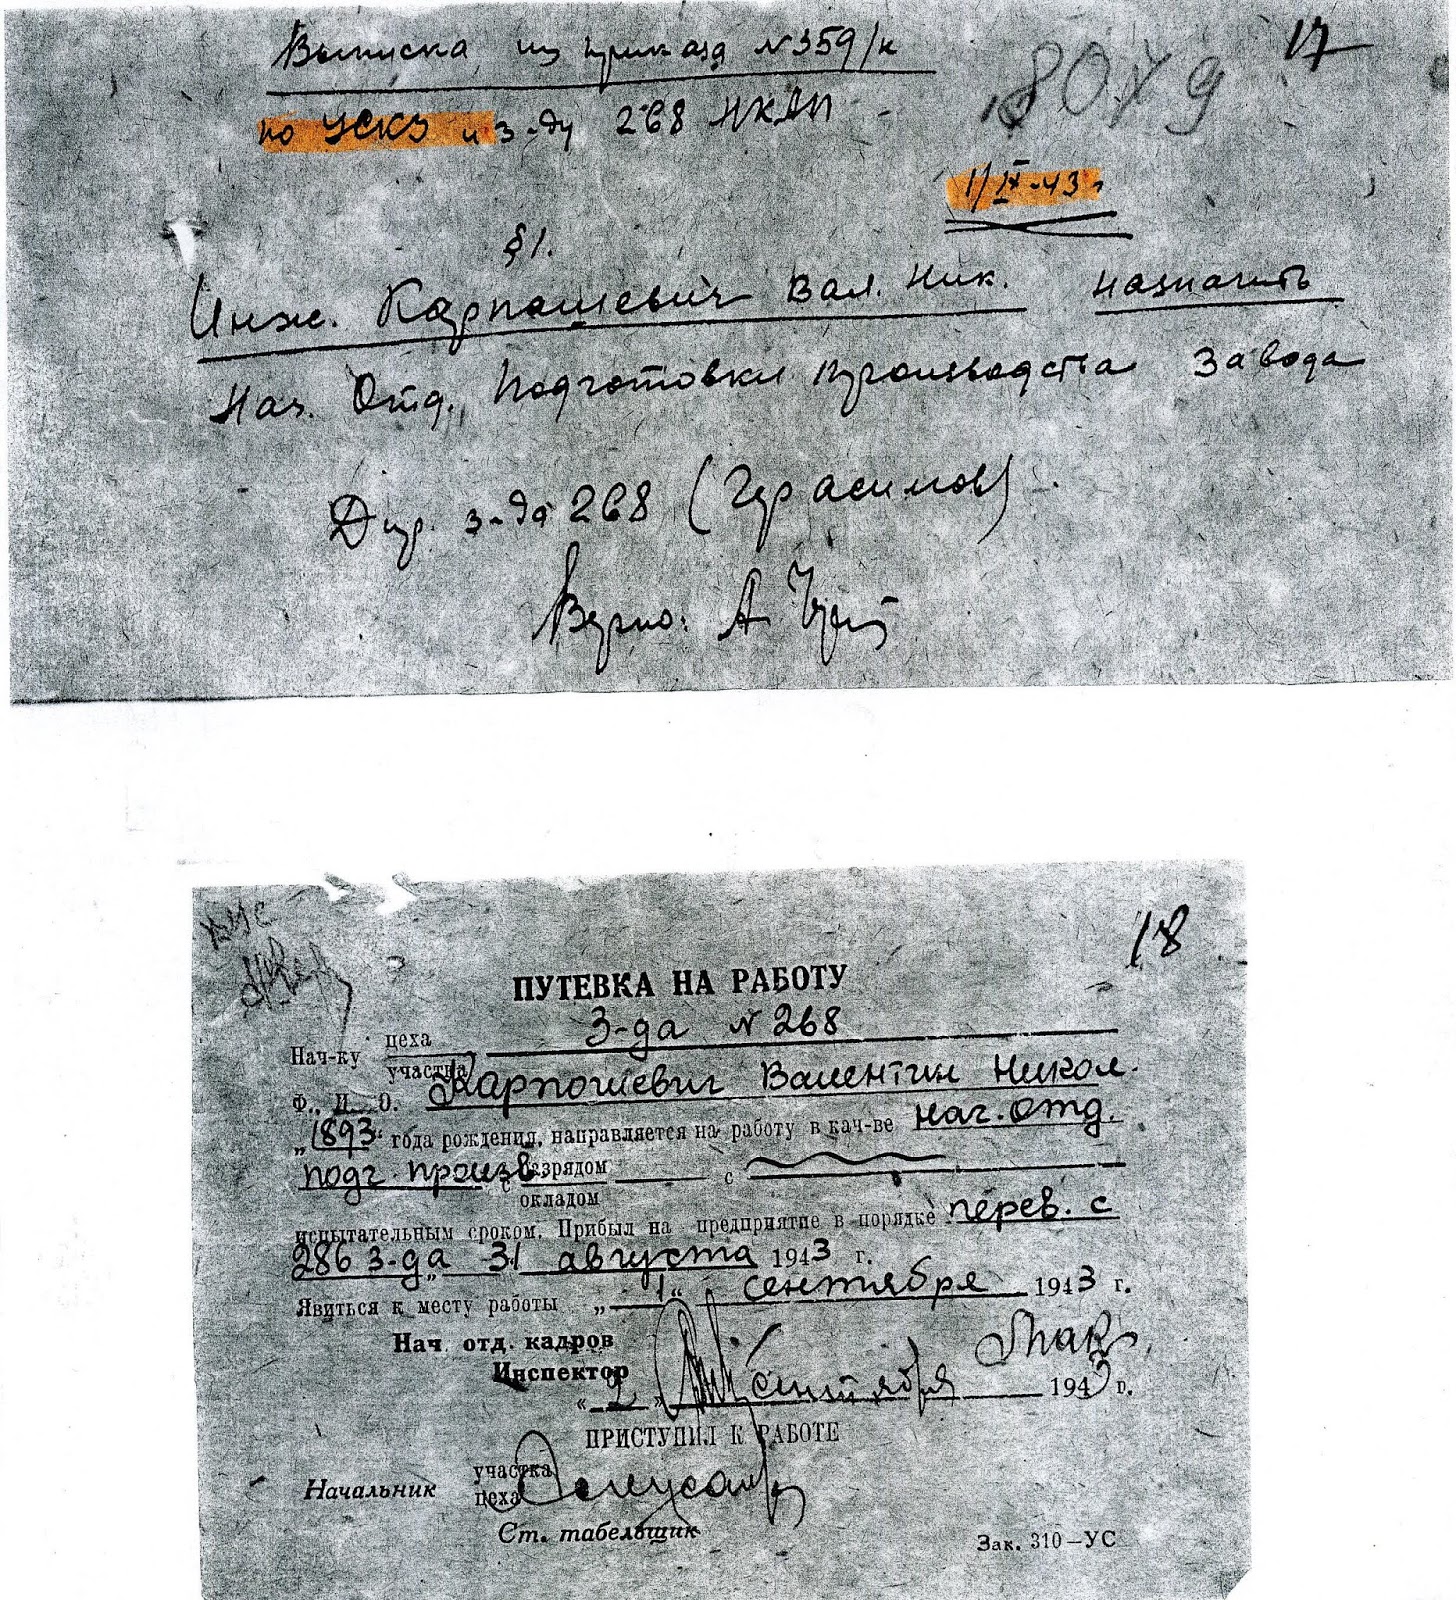 17
Выписка из приказа №359/к
по УСКЗ и з-ду 268 НКАП
1/IX-43г
§1.
Инж. Карпошевич Вал. Ник. назначить
Нач. Отд. Подготовки производства Завода
Дир. з-да 268 (Герасимов)
Верно: А
18
ПУТЕВКА НА РАБОТУ
Нач-ку цеха участка З-да №268
Ф., И. О. Карпошевич Валентин Никол.
„1893 года рождения, направляется на работу в кач-ве нач. отд.
подг. произв. с разрядом окладом с
испытательным сроком. Прибыл на предприятие в порядке перев. с
286 з-да „ 31 августа 1943 г.
Явиться к месту работы „ 1 “ сентября 1943 г.
Нач. отд. кадров
Инспектор
« 2 » сентября 1943 г.
ПРИСТУПИЛ К РАБОТЕ
Начальник участка цеха
Ст. табельщик
Зак. 310—УС